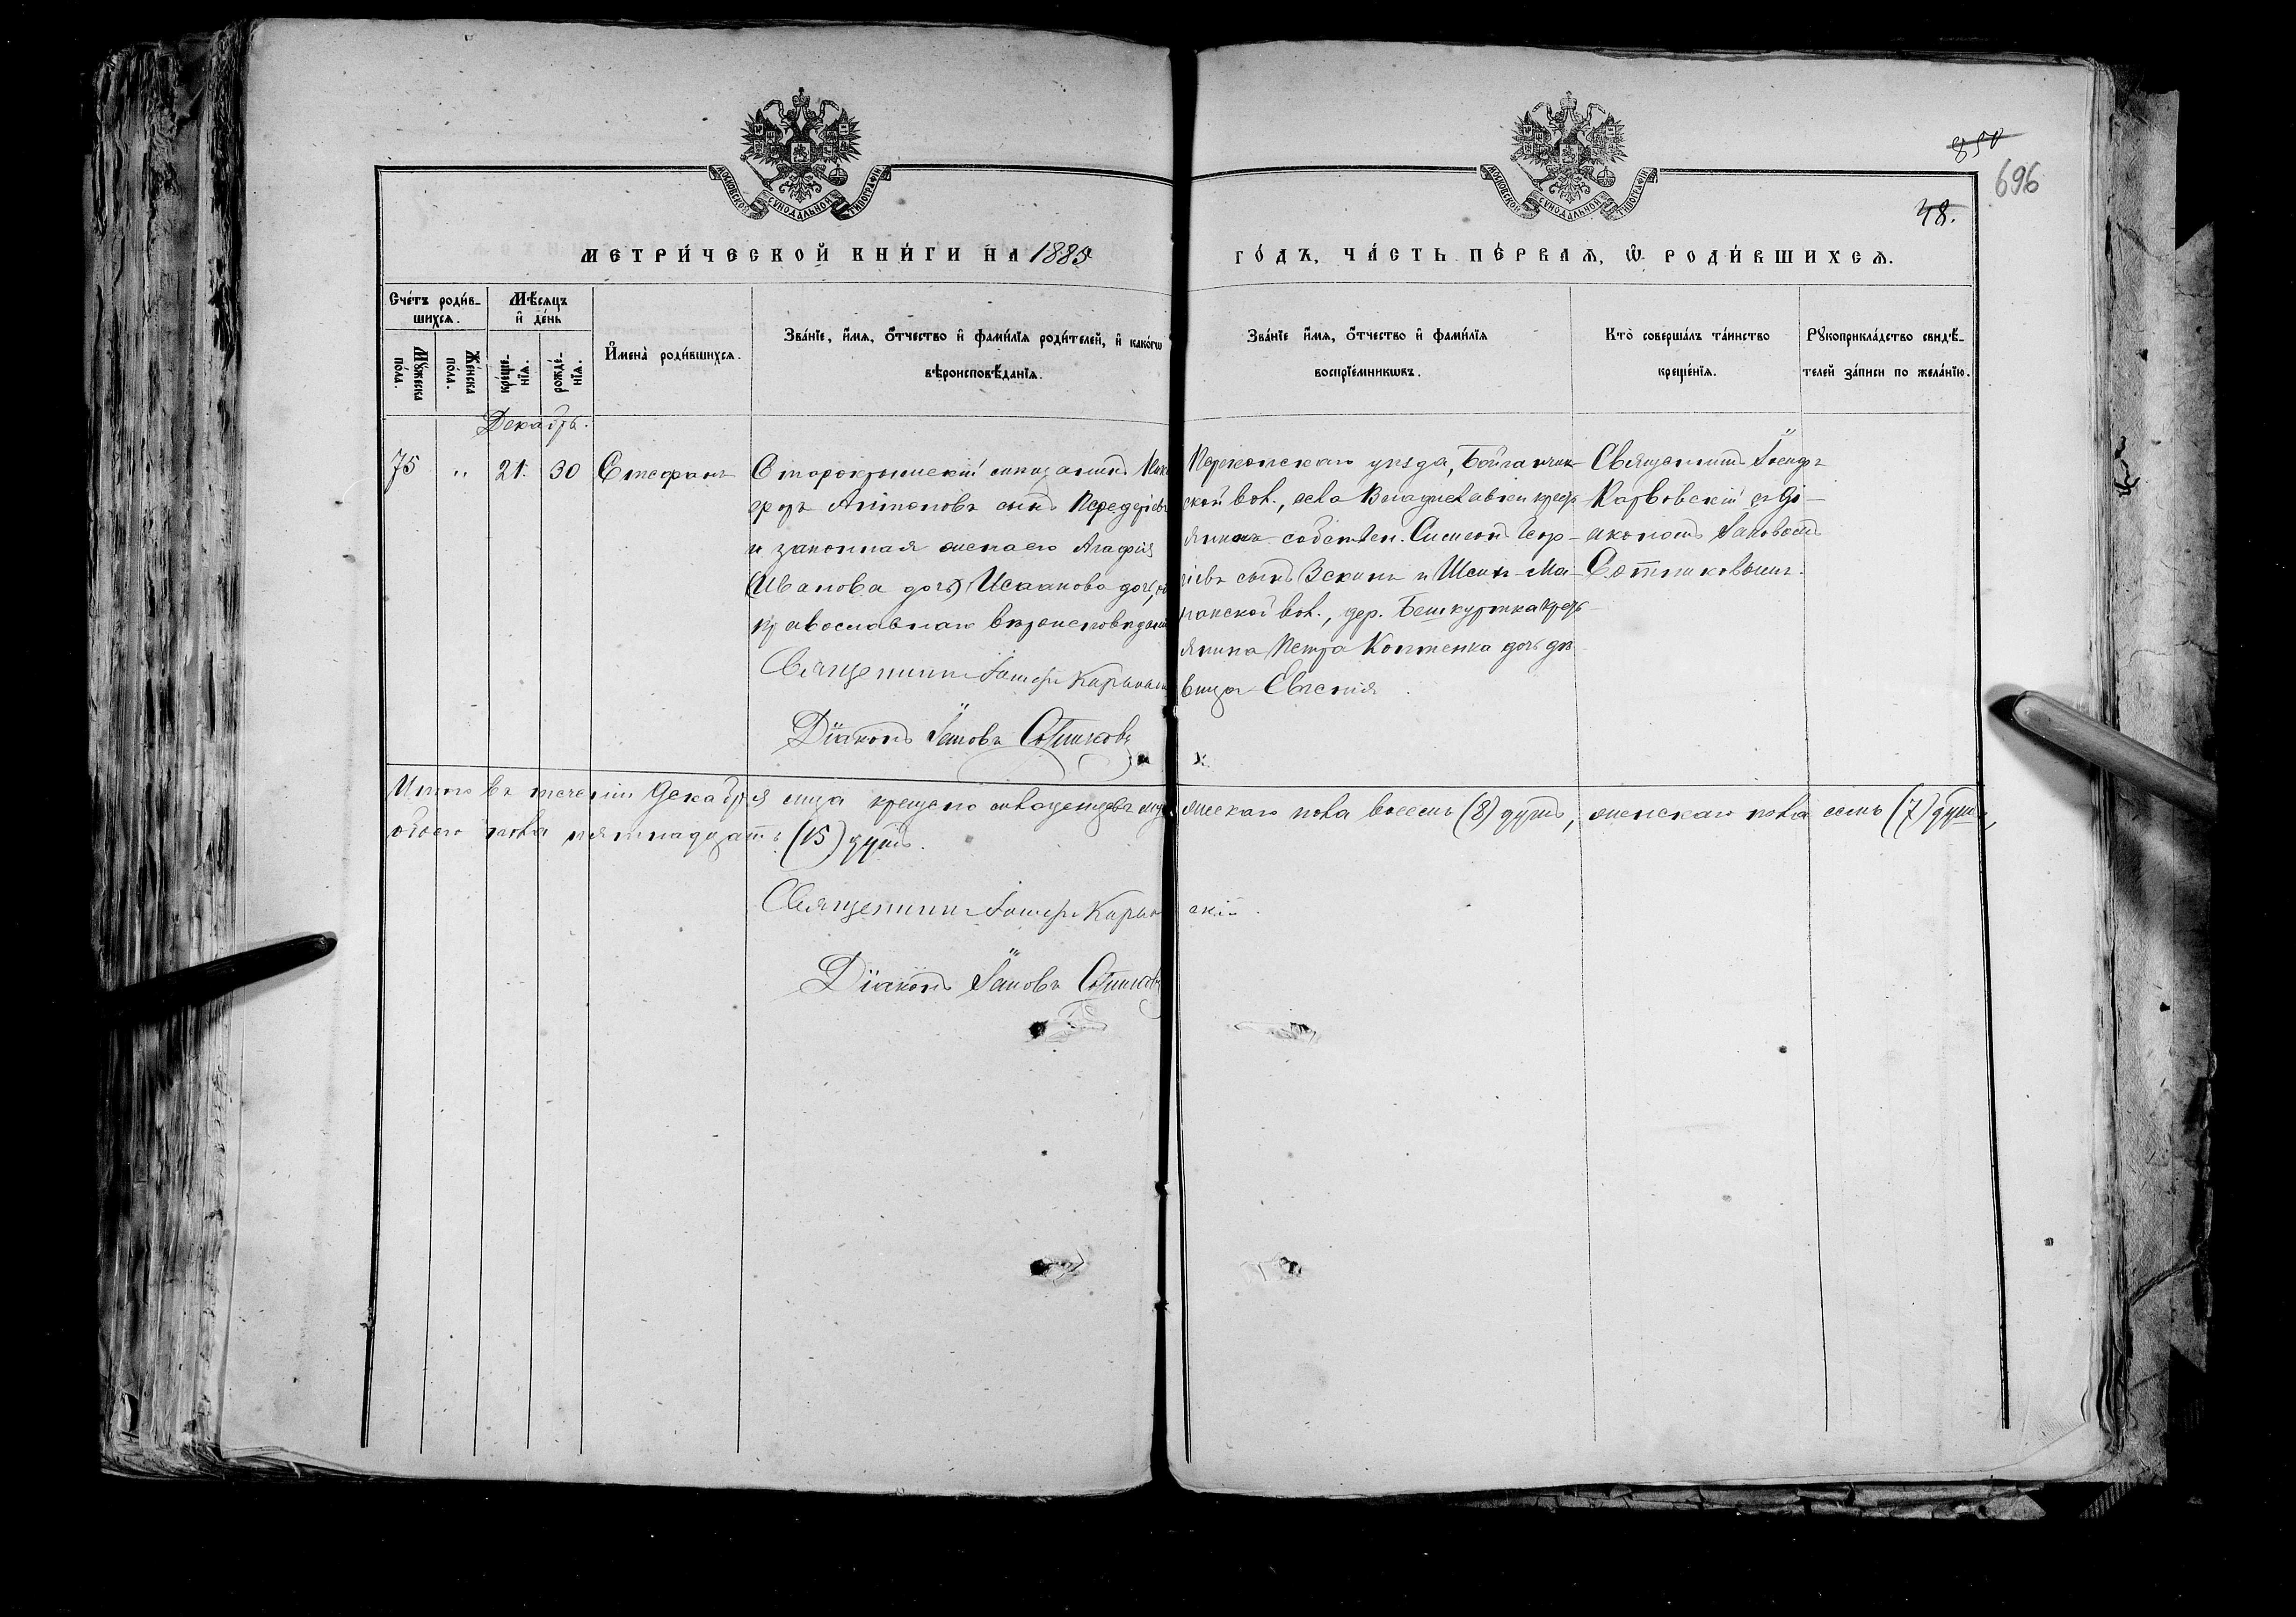 850
696
48.
МОСКОВСКОЙ СѴНОДАЛЬНОЙ ТИПОГРАФІИ
МОСКОВСКОЙ СѴНОДАЛЬНОЙ ТИПОГРАФІИ
МЕТРИ́ЧЕСКОЙ КНИ́ГИ НА 1885
ГО́ДЪ, ЧА́СТЬ ПЕ́РВАѦ, Ѡ РОДИ́ВШИХСѦ.
Сче́тъ роди́в-
шихсѧ.
Мꙋ́жеска по́ла.
Же́нска по́ла.
Мѣ́сѧцъ
и҆ де́нь
креще́-нїѧ.
рожде́-нїѧ.
И҆мена̀ роди́вшихсѧ.
Зва́нїе, и҆́мѧ, ѻ҆́тчество и҆ фами́лїѧ роди́телей, и҆ како́гѡ
вѣроисповѣ́данїѧ.
Зва́нїе и҆́мѧ, ѻ҆́тчество и҆ фами́лїѧ
воспрїе́мникѡвъ.
Кто̀ соверша́лъ та́инство
креще́нїѧ.
Рꙋкоприкла́дство свидѣ́-
телей за́писи по жела́нїю.
Декабрь.
75 " 21. 30 Стефанъ
Старокрымскій мищанинъ Ники
форъ Антоновъ сынъ Передеріевъ
и законная жена его Агафія
(Иванова дочь) Исаакова дочь,
православнаго вѣроисповѣданія
Священникъ
Діаконъ Іаковъ Сотниковъ
Перекопскаго уѣзда,
ской вол., села Владиславки крест
янинъ собствен. Симеонъ Геор-
гіевъ сынъ Зскинъ и Шеихъ-Мо-
накской вол., дер. Бешкуртка крест-
янина Петра Коптенка дочь дѣ-
вица Евгенія.
Священникъ
Карвовскій съ Ді-
акономъ Іаковомъ
Сотниковымъ.
х.
Итого въ теченіи Декабря м-ца крещено младенцевъ мужескаго пола восемь (8) душъ, женскаго пола семь (7) душъ,
обоего пола пятнадцать (15) душъ.
Священникъ
скій.
Діаконъ Іаковъ Сотниковъ